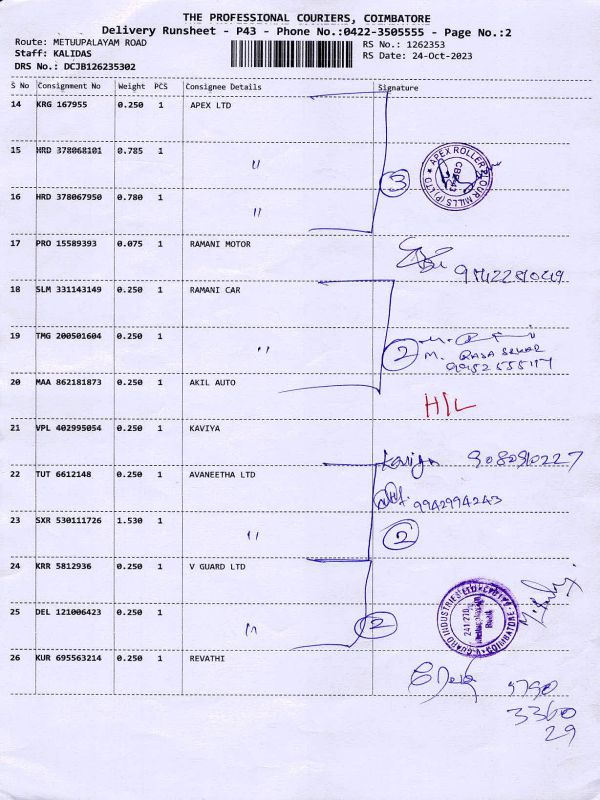 THE PROFESSIONAL COURIERS, COIMBATORE
Delivery Runsheet - P43 - Phone No.:0422-3505555 - Page No.:2
Route: METUUPALAYAM ROAD RS No.: 1262353
Staff: KALIDAS RS Date: 24-Oct-2023
DRS No.: DCJB126235302
S No Consignment No Weight PCS Consignee Details Signature
14 KRG 167955 0.250 1 APEX LTD
15 HRD 378068101 0.785 1 "
3
APEX ROLLER FLOUR MILLS (P) LTD
16 HRD 378067950 0.780 1 "
17 PRO 15589393 0.075 1 RAMANI MOTOR
18 SLM 331143149 0.250 1 RAMANI CAR
19 TMG 200501604 0.250 1 "
2
M. RAJA SEKAR
20 MAA 862181873 0.250 1 AKIL AUTO
H/L
21 VPL 402995054 0.250 1 KAVIYA
Kaviya
22 TUT 6612148 0.250 1 AVANEETHA LTD
9942994243
23 SXR 530111726 1.530 1 "
2
24 KRR 5812936 0.250 1 V GUARD LTD
25 DEL 121006423 0.250 1 "
2
V-GUARD INDUSTRIES LTD
COIMBATORE
26 KUR 695563214 0.250 1 REVATHI
3360
29